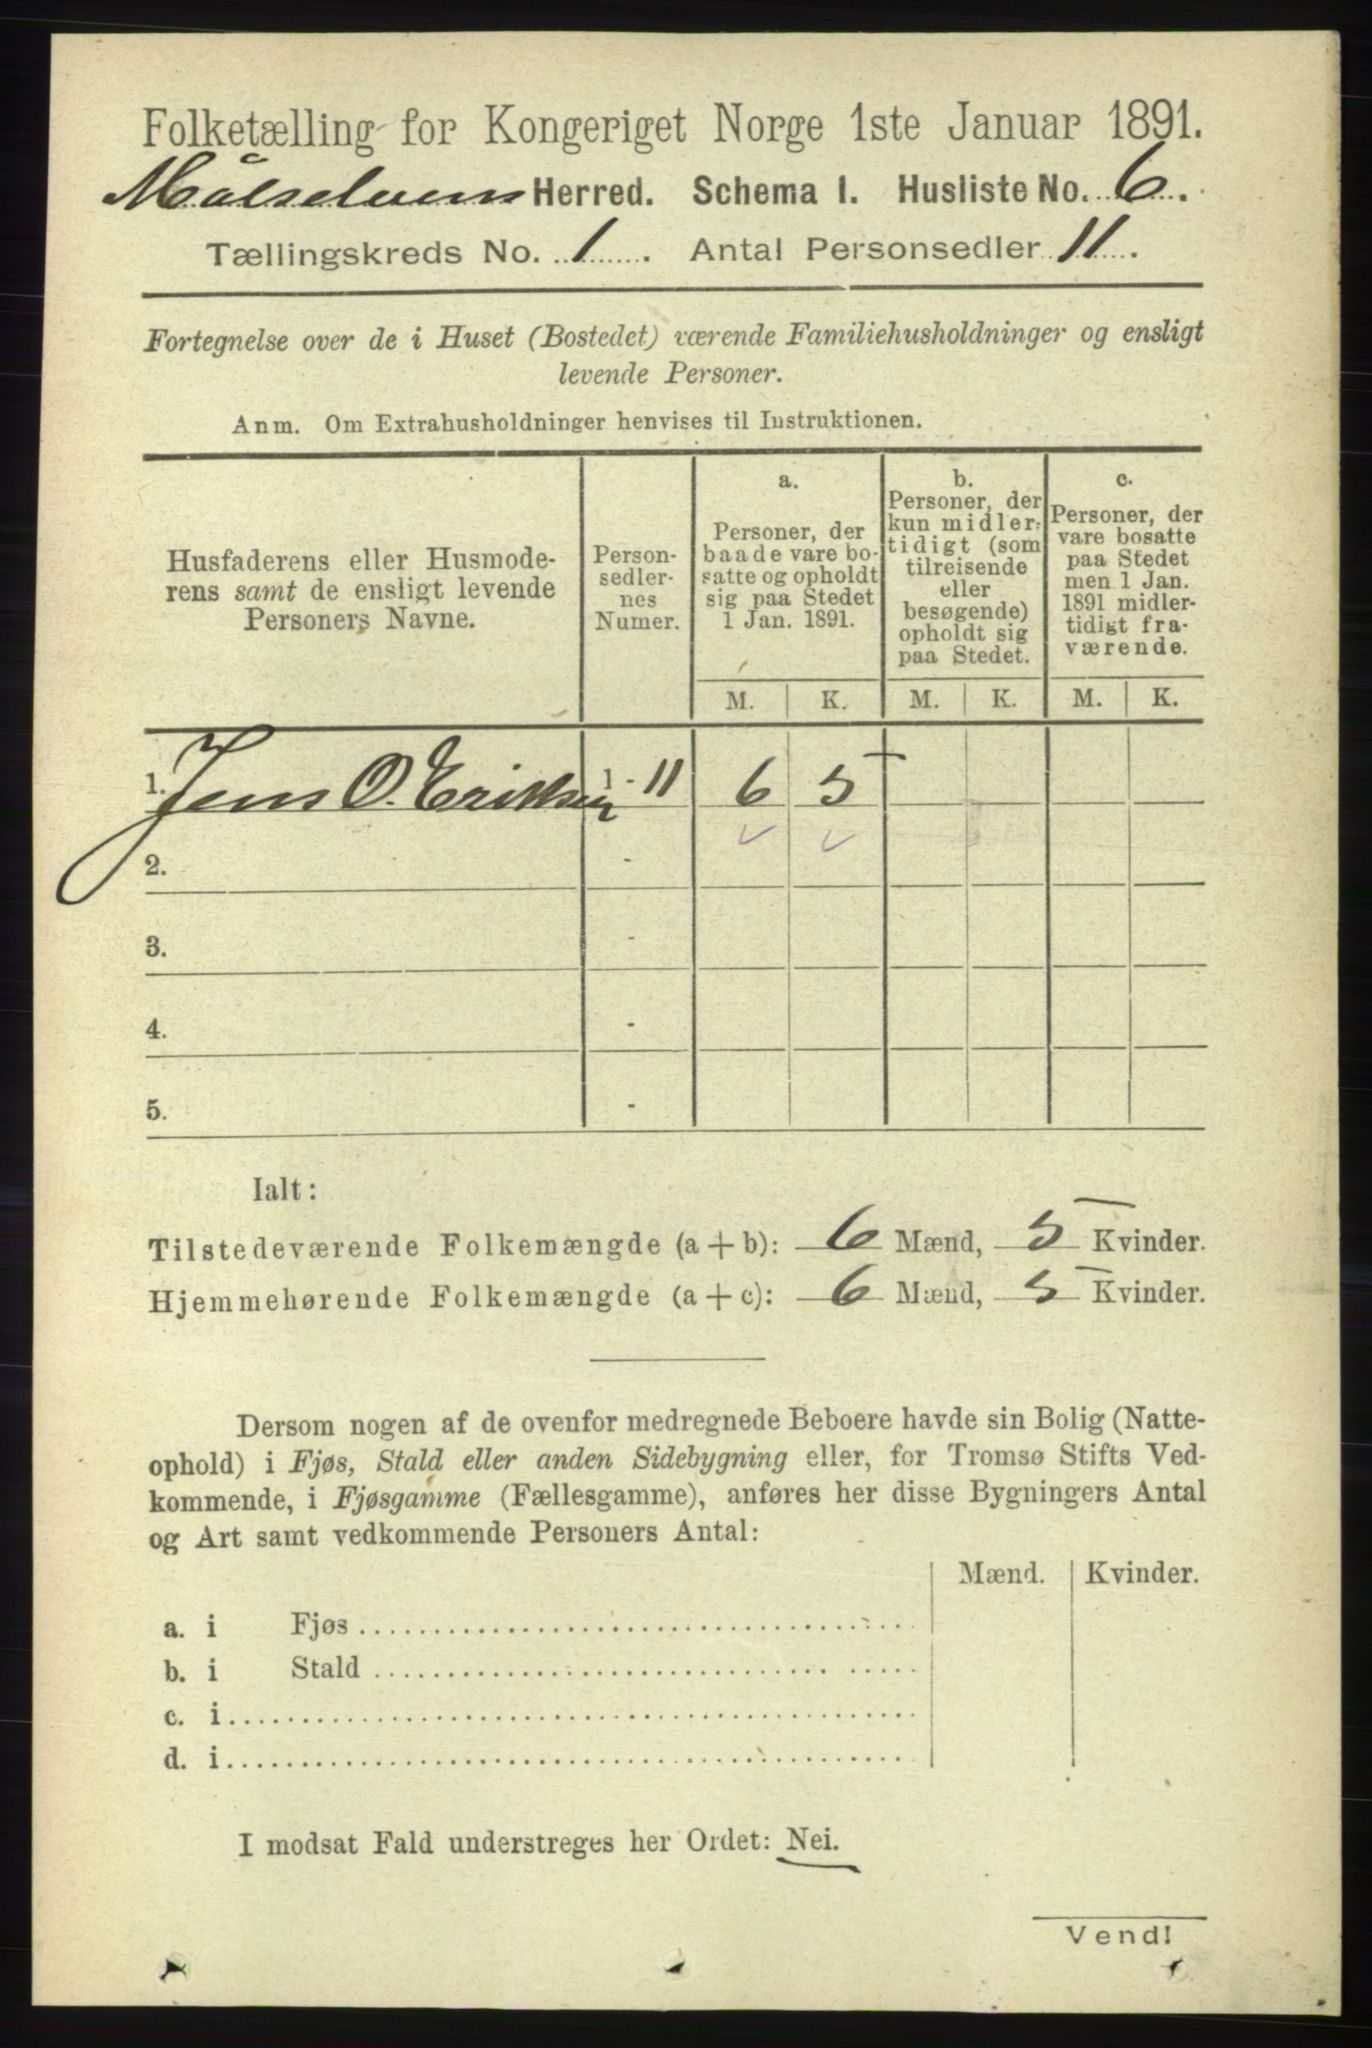 Folketælling for Kongeriget Norge 1ste Januar 1891.
Målselven Herred. Schema I. Husliste No. 6.
Tællingskreds No. 1. Antal Personsedler 11.
Fortegnelse over de i Huset (Bostedet) værende Familiehusholdninger og ensligt
levende Personer.
Anm. Om Extrahusholdninger henvises til Instruktionen.
Husfaderens eller Husmode-
rens samt de ensligt levende
Personers Navne.
Person-
sedler-
nes
Numer.
a.
Personer, der
baade vare bo-
satte og opholdt
sig paa Stedet
1 Jan. 1891.
M. K.
b.
Personer, der
kun midler-
tidigt (som
tilreisende
eller
besøgende)
opholdt sig
paa Stedet.
M. K.
c.
Personer, der
vare bosatte
paa Stedet
men 1 Jan.
1891 midler-
tidigt fra-
værende.
M. K.
1. Jens O. Eriksen 1 - 11 6 5
2. -
3. -
4. -
5. -
Ialt:
Tilstedeværende Folkemængde (a + b): 6 Mænd, 5 Kvinder.
Hjemmehørende Folkemængde (a + c): 6 Mænd, 5 Kvinder.
Dersom nogen af de ovenfor medregnede Beboere havde sin Bolig (Natte-
ophold) i Fjøs, Stald eller anden Sidebygning eller, for Tromsø Stifts Ved-
kommende, i Fjøsgamme (Fællesgamme), anføres her disse Bygningers Antal
og Art samt vedkommende Personers Antal:
Mænd. Kvinder.
a. i Fjøs
b. i Stald
c. i
d. i
I modsat Fald understreges her Ordet: Nei.
Vend!